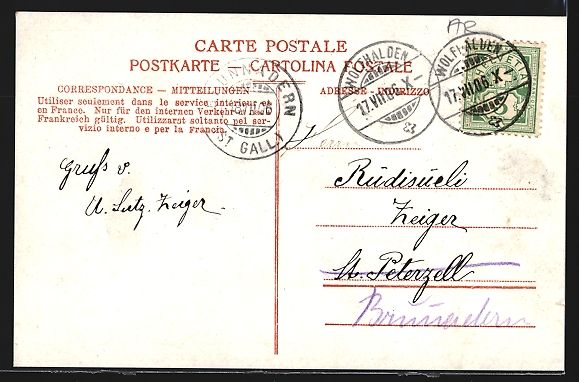 AR
CARTE POSTALE
POSTKARTE — CARTOLINA POSTALE
CORRESPONDANCE — MITTEILUNGEN
ADRESSE - INDIRIZZO
Utiliser seulement dans le service intérieur et
en France. Nur für den internen Verkehr und
Frankreich gültig. Utilizzarsi soltanto pel ser-
vizio interno e per la Francia.
BRUNNADERN
ST GALL
WOLFHALDEN
17.VII.06.X
WOLFHALDEN
17.VII.06.X
HELVETIA
Gruß v.
A. Lutz. Zeiger
Rüdisüeli
Zeiger
St. Peterzell
Brunnadern